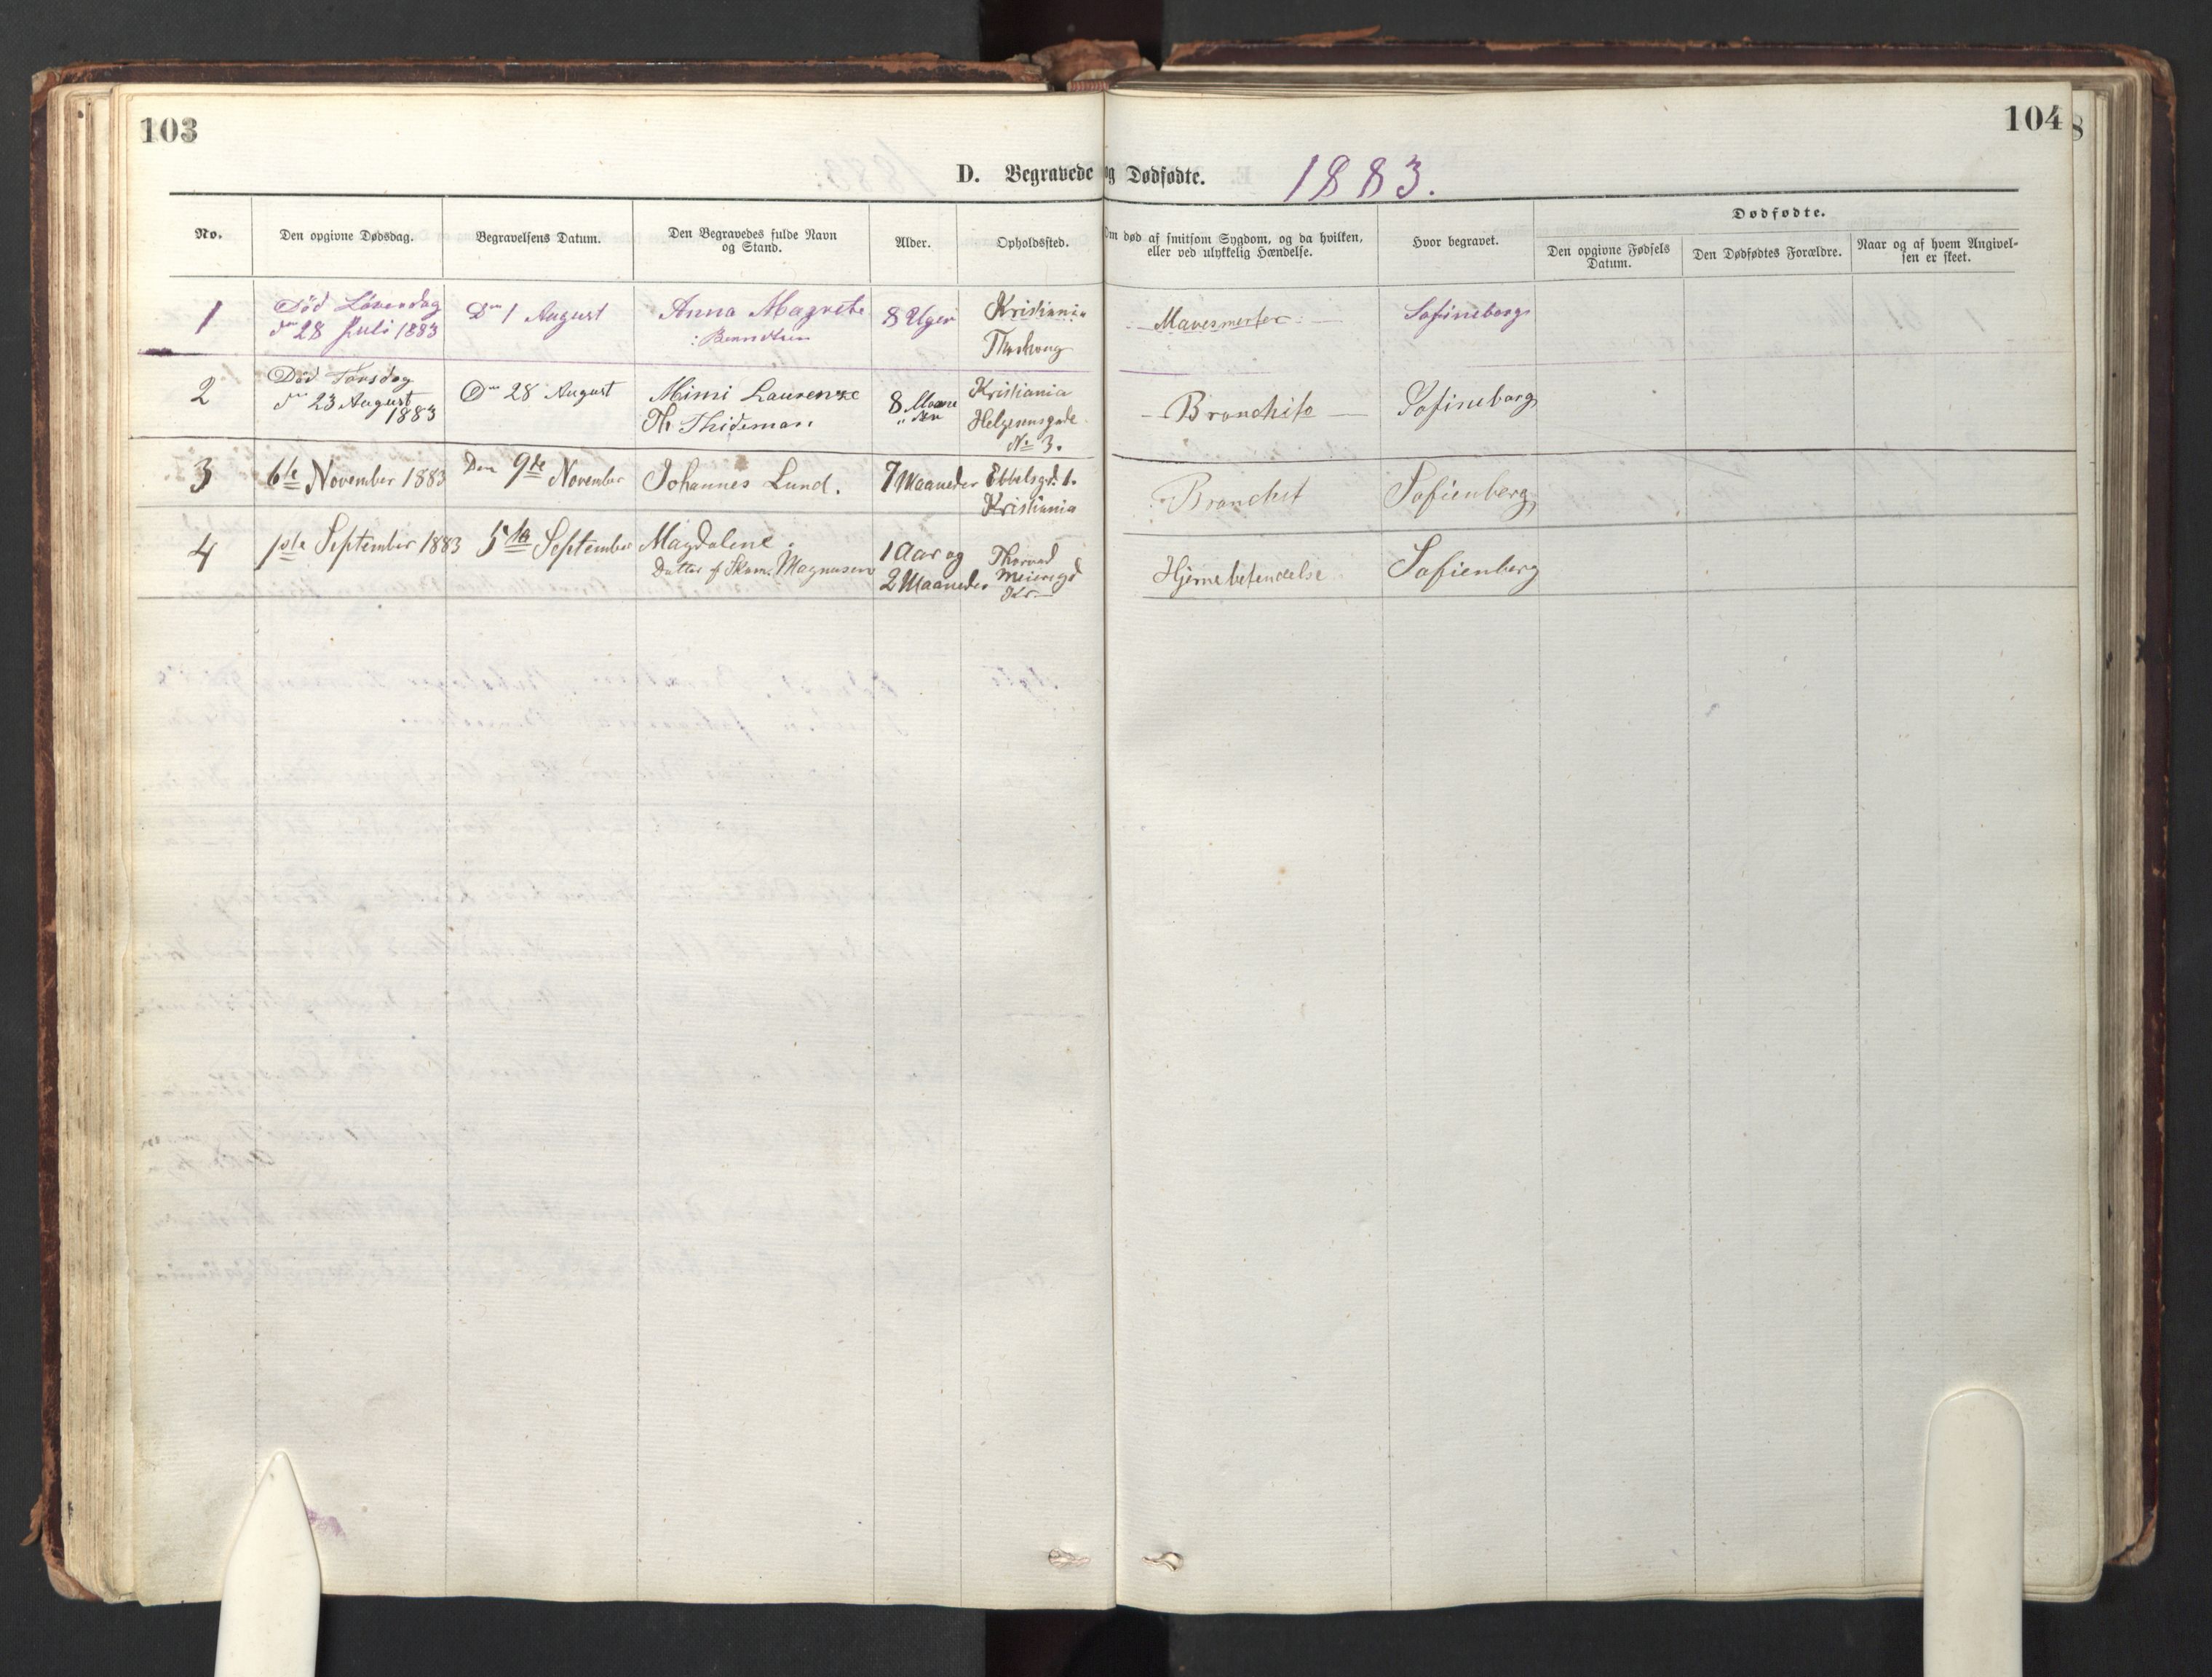 103
104
D. Begravede og Dødfødte. 1883.
No.
Den opgivne Dødsdag.
Begravelsens Datum.
Den Begravedes fulde Navn
og Stand.
Alder.
Opholdssted.
Om død af smitsom Sygdom, og da hvilken,
eller ved ulykkelig Hændelse.
Hvor begravet.
Dødfødte.
Den opgivne Fødsels
Datum.
Den Dødfødtes Forældre.
Naar og af hvem Angivel-
sen er skeet.
1
Död Löverdag
dn 28 Juli 1883
Dn 1 August
Anna Magrete
8 Uger
Kristiania
Mavesmerter
Sofineberg
2
Död Torsdag
dn 23 August
1883
Dn 28 August
Mimi Laurenze
Th. Thideman.
8 Maane
der
Kristiania
Helgesensgade
No 3.
Bronchito
Sofineberg
3
6te November 1883
Den 9te November
Johannes Lund.
7 Maaneder
Ebbelsgd. 1.
Kristiania
Bronchit
Sofienberg
4
1ste September 1883
5te September
Magdalene
Datter af Skom. Magnusen
1 Aar og
2 Maaneder
Thorvad
Meiersgd
Kr.
Hjernebetendelse
Sofienberg